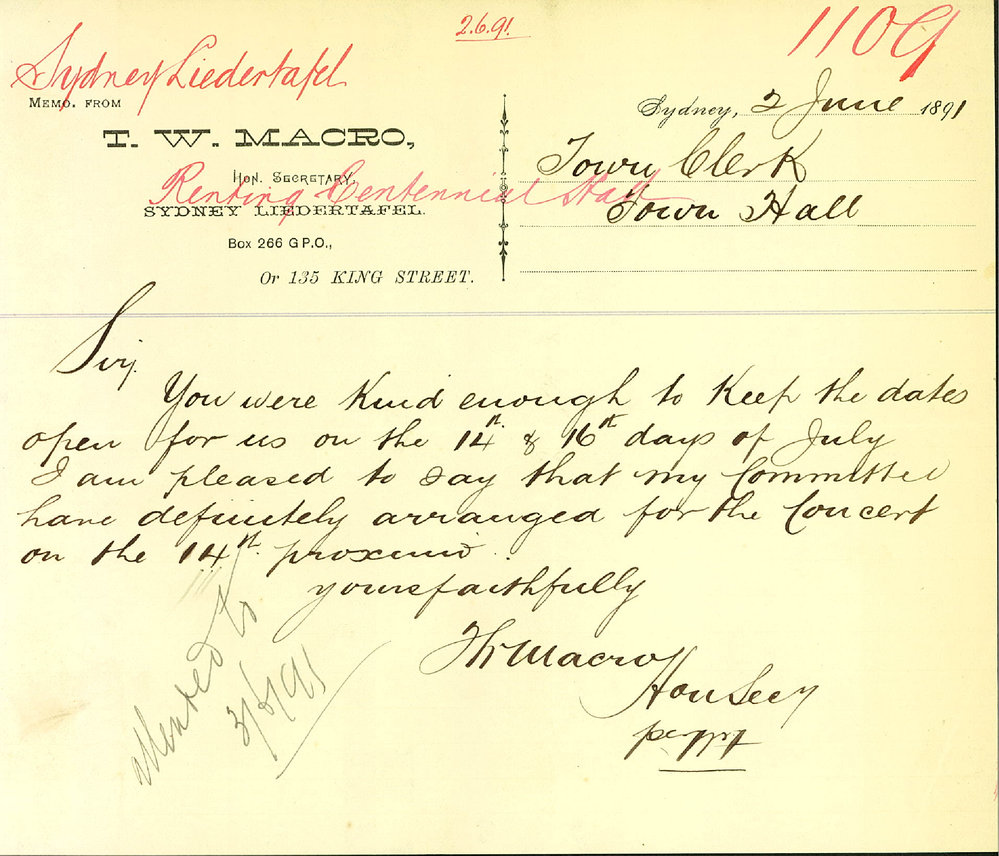 2.6.91.
1109
Sydney Liedertafel
MEMO. FROM
T. W. MACRO,
HON. SECRETARY,
Renting Centennial Hall
SYDNEY LIEDERTAFEL.
Box 266 G P.O.,
Or 135 KING STREET.
Sydney, 2 June 1891
Town Clerk
Town Hall
Sir,
You were kind enough to keep the dates
open for us on the 14th. & 16th days of July
I am pleased to say that my Committee
have definitely arranged for the Concert
on the 14th. proximo.
yours faithfully
TWMacro
Hon Secy
attended to
3/6/91